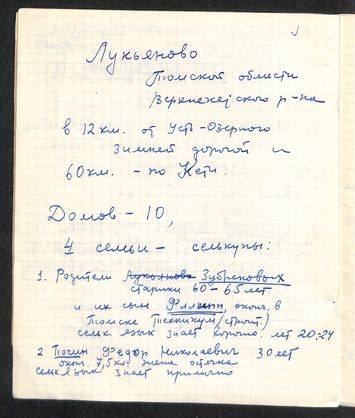 Лукьяново
Томской области
Верхнекетского р-на
в 12 км. от Усть-Озерного
зимней дорогой и
60 км. - по Кети.
Домов - 10,
4 семьи - селькупы:
1. Родители Лукьянова Зубрековых
старики 60-65 лет
и их сын Филипп, оконч. в
Томске техникум (строит.)
сельк. язык знает хорошо. лет 20-24
2 Печин Федор Николаевич 30 лет
оконч. 7,5 кл.
сельк язык знает прилично